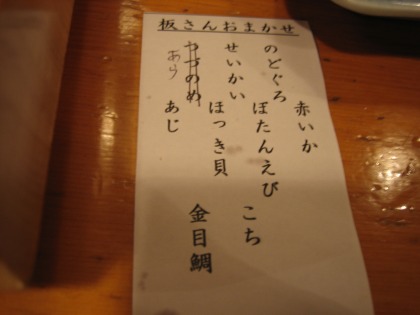 板さんおまかせ
赤いか
のどぐろ
ぼたんえび
こち
せいかい
ほっき貝
金目鯛
あら
あじ